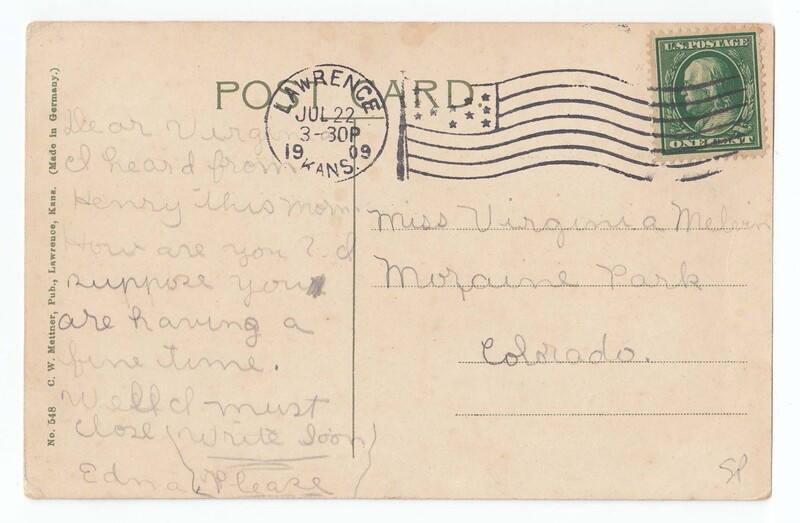 POST CARD
LAWRENCE
JUL 22
3-30P
1909
KANS.
U.S. POSTAGE
ONE CENT
No. 548 C. W. Mettner, Pub., Lawrence, Kans. (Made in Germany.)
Dear Virginia
I heard from
Henry this morn.
How are you? I
suppose you
are having a
fine time.
Well I must
close (Write Soon)
Edna (Please
Miss Virginia Melvin
Moraine Park
Colorado.
SP